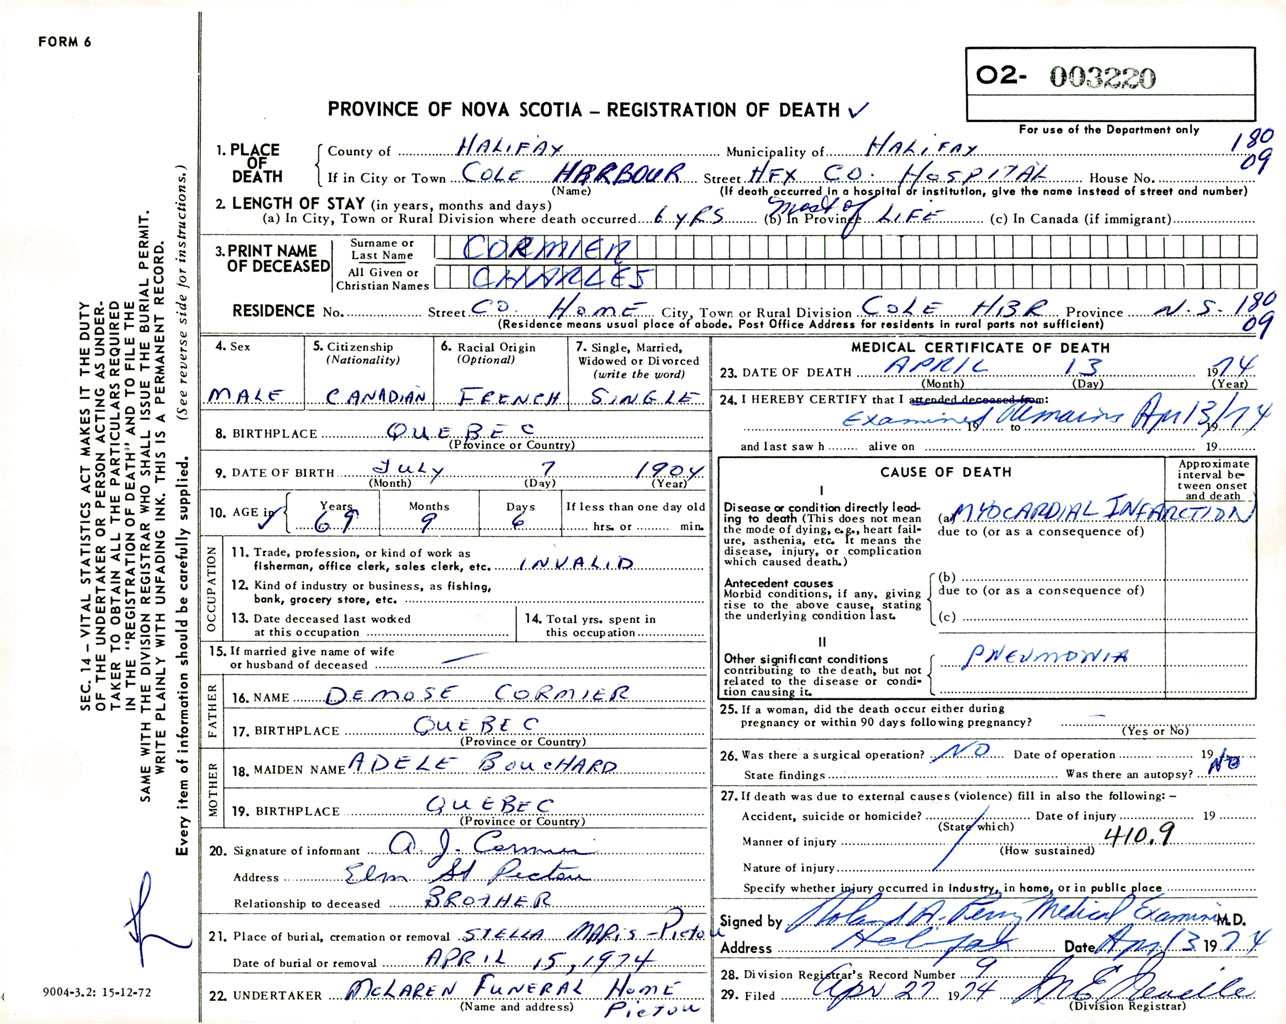 FORM 6
O2- 003220
For use of the Department only
PROVINCE OF NOVA SCOTIA – REGISTRATION OF DEATH ✓
1. PLACE OF DEATH County of HALIFAX Municipality of HALIFAX 180
If in City or Town COLE HARBOUR Street HFX CO. HOSPITAL House No. 09
(Name) (If death occurred in a hospital or institution, give the name instead of street and number)
2. LENGTH OF STAY (in years, months and days)
(a) In City, Town or Rural Division where death occurred 6 YRS (b) In Province most of LIFE (c) In Canada (if immigrant)
3. PRINT NAME OF DECEASED Surname or Last Name CORMIER
All Given or Christian Names CHARLES
RESIDENCE No. Street CO. HOME City, Town or Rural Division COLE HBR Province N.S. 180
(Residence means usual place of abode. Post Office Address for residents in rural parts not sufficient) 09
4. Sex MALE
5. Citizenship (Nationality) CANADIAN
6. Racial Origin (Optional) FRENCH
7. Single, Married, Widowed or Divorced (write the word) SINGLE
8. BIRTHPLACE QUEBEC
(Province or Country)
9. DATE OF BIRTH July 7 1904
(Month) (Day) (Year)
10. AGE in ✓ Years 69 Months 9 Days 6 If less than one day old hrs. or min.
OCCUPATION
11. Trade, profession, or kind of work as
fisherman, office clerk, sales clerk, etc. INVALID
12. Kind of industry or business, as fishing,
bank, grocery store, etc.
13. Date deceased last worked
at this occupation
14. Total yrs. spent in
this occupation
15. If married give name of wife
or husband of deceased —
FATHER
16. NAME DEMOSE CORMIER
17. BIRTHPLACE QUEBEC
(Province or Country)
MOTHER
18. MAIDEN NAME ADELE BOUCHARD
19. BIRTHPLACE QUEBEC
(Province or Country)
20. Signature of informant A J. Cormier
Address Elm St Pictou
Relationship to deceased BROTHER
21. Place of burial, cremation or removal STELLA MARIS - Pictou
Date of burial or removal APRIL 15, 1974
22. UNDERTAKER McLAREN FUNERAL HOME
(Name and address) PICTOU
MEDICAL CERTIFICATE OF DEATH
23. DATE OF DEATH APRIL 13 1974
(Month) (Day) (Year)
24. I HEREBY CERTIFY that I attended deceased from:
Examined remains Apr 13/74
19 to 19
and last saw h alive on 19
CAUSE OF DEATH
Approximate interval between onset and death
I
Disease or condition directly leading to death (This does not mean the mode of dying, e.g., heart failure, asthenia, etc. It means the disease, injury, or complication which caused death.)
(a) MYOCARDIAL INFARCTION
due to (or as a consequence of)
Antecedent causes
Morbid conditions, if any, giving rise to the above cause, stating the underlying condition last.
(b)
due to (or as a consequence of)
(c)
II
Other significant conditions
contributing to the death, but not related to the disease or condition causing it.
PNEUMONIA
25. If a woman, did the death occur either during
pregnancy or within 90 days following pregnancy? —
(Yes or No)
26. Was there a surgical operation? NO Date of operation 19
State findings Was there an autopsy? NO
27. If death was due to external causes (violence) fill in also the following: –
Accident, suicide or homicide? Date of injury 19
(State which)
Manner of injury 410.9
(How sustained)
Nature of injury
Specify whether injury occurred in Industry, in home, or in public place
Signed by Roland A. Perry Medical Examiner M.D.
Address Halifax Date Apr 13 1974
28. Division Registrar's Record Number 9
29. Filed Apr 27 1974
(Division Registrar)
SEC. 14 – VITAL STATISTICS ACT MAKES IT THE DUTY
OF THE UNDERTAKER OR PERSON ACTING AS UNDER-
TAKER TO OBTAIN ALL THE PARTICULARS REQUIRED
IN THE "REGISTRATION OF DEATH" AND TO FILE THE
SAME WITH THE DIVISION REGISTRAR WHO SHALL ISSUE THE BURIAL PERMIT.
WRITE PLAINLY WITH UNFADING INK. THIS IS A PERMANENT RECORD.
Every item of information should be carefully supplied. (See reverse side for instructions.)
9004-3.2: 15-12-72